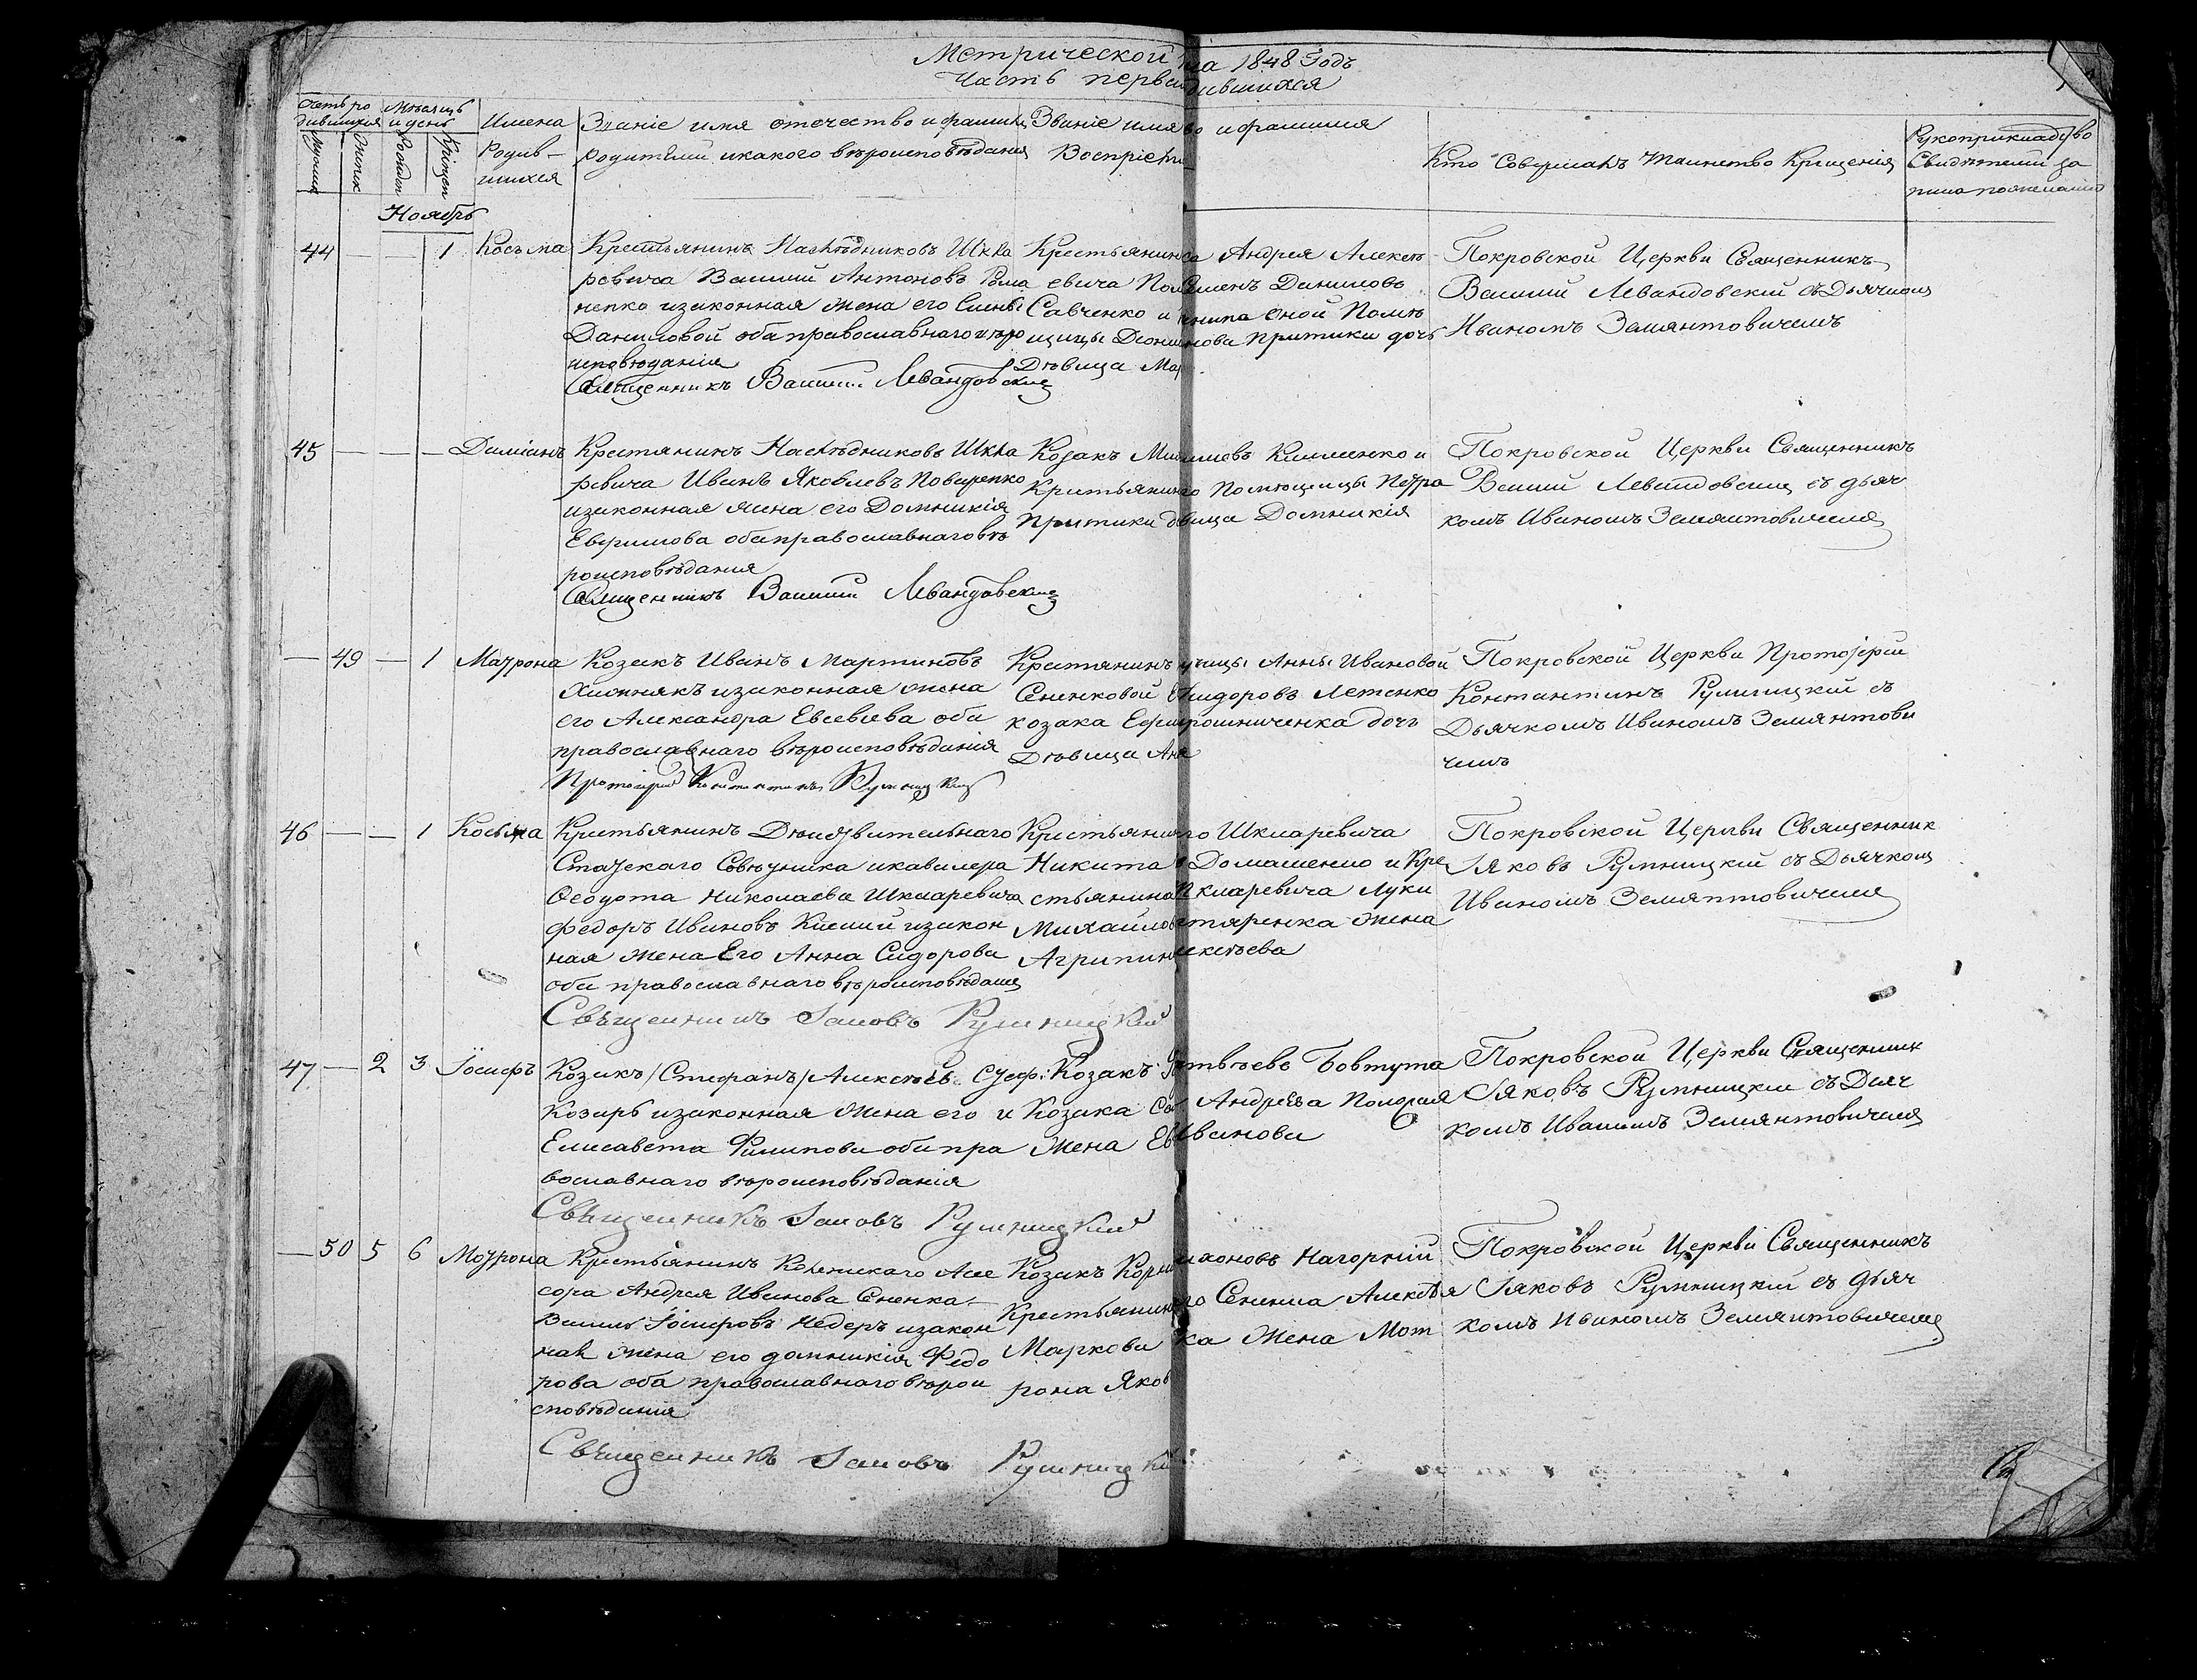 Метрической на 1848 Годъ
Часть перва дившихся
Счетъ ро дившихся
Мѣсяцъ и день
Имена Родив-шихся
Званіе имя отечество и фамилія
родителей и какого вѣроисповѣданія
Званіе имя во и фамилія
Воспріем
Кто Совершалъ Таинство Крещенія
Свидѣтелей за
Ноябрь
44 — — 1 Косьма
Крестьянинъ Наслѣдниковъ Шкла
ревича Василий Антоновъ Рома
ненко и законная жена его Елены
Даниловой оба православнаго вѣро
исповѣданія
Священникъ Василий Левандовский
Крестьянин а Андрея Алексѣ
евича Пол Даниловъ
Савченко и оной Помѣ
щицы Притики дочь
Дѣвица Мар
Покровской Церкви Священникъ
Василий Левандовский съ Дьячком
Иваномъ Земянтовичемъ
45 — — — Даміанъ
Крестянинъ Наслѣдниковъ Шкла
ревича Иванъ Яковлевъ
и законная жена его Домникія
Ефримова оба православнаго вѣ
роисповѣдания
Священникъ Василий Левандовский
Козакъ Ми Клименко и
Крестьянин го Помѣщицы Петра
Притики д вица Домникія
Покровской Церкви Священникъ
Василий Левандовский съ дьяч
комъ Иваномъ Земянтовичемъ
— 49 — 1 Матрона
Козакъ Иванъ Мартиновъ
и законная жена
его Александра Евсевіева оба
православнаго вѣроисповѣданія
Протоіерей Константинъ Румницкий
Крестянинъ щицы Анны Ивановой
Сененковой сидоровъ Летенко
козака Ефи рошниченка дочь
Дѣвица Анна
Покровской Церкви Протоіерей
Контантинъ Румницкий съ
Дьячкомъ Иваномъ Земянтови
чемъ
46 — — 1 Косьма
Крестьянинъ Дѣйствительнаго
Статскаго Совѣтника и кавалера
Феодота Николаева Шкларевича
Федоръ Ивановъ и закон
ная жена Его Анна Сидорова
оба православнаго вѣроисповѣдания
Свѣщенникъ Іаковъ Румницкий
Крестьянин го Шкларевича
Никита Домашенко и Кре
стьянина Шкларевича Луки
Михайлов тяренка жена
Агрипин лексѣева
Покровской Церкви Священник
Іяковъ Румницкий съ Дьячком
Иваномъ Земянтовичемъ
47 — 2 3 Іосифъ
Козакъ /Стефанъ/ Алексѣев
Козырь и законная жена его
Елисавета Филипова оба пра
вославнаго вѣроисповѣданія
Свѣщенникъ Іаковъ Румницкий
Козакъ твѣевъ Бовтута
и Козака Андреева
жена Ев Иванова
Покровской Церкви Священник
Іяковъ Румницкий съ Дьяч
комъ Иваномъ Земянтовичемъ
— 50 5 6 Матрона
Крестьянинъ Колежскаго Асе
сора Андрея Иванова Сененка
Василь Іосифовъ Недеръ и закон
ная жена его домникія Федо
рова оба православнаго вѣрои
сповѣдания
Свѣщенникъ Іаковъ Румницкий
Козакъ Корни Нагорний
Крестьянин го Сененка Алексѣя
Маркова ка жена Мот
рона Яков
Покровской Церкви Священникъ
Іяковъ Румницкий съ дьяч
комъ Иваномъ Земянтовичемъ